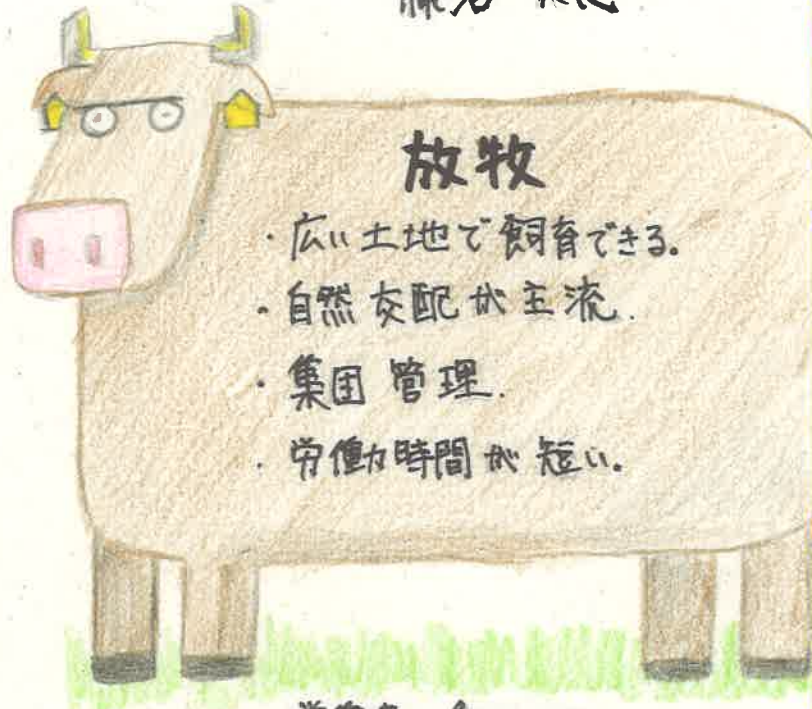 放牧
・広い土地で飼育できる。
・自然交配が主流.
・集団管理.
・労働時間が短い。